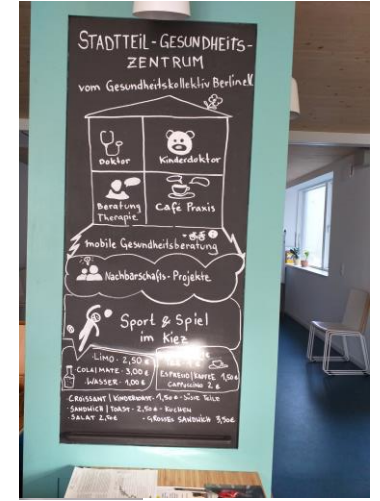 STADTTEIL - GESUNDHEITS-
ZENTRUM
vom Gesundheitskollektiv Berlin e.V.
Doktor
Kinderdoktor
Beratung
Therapie
Café Praxis
mobile Gesundheitsberatung
Nachbarschafts-Projekte
Sport & Spiel
im Kiez
·LIMO - 2,50 €
·COLA|MATE - 3,00 €
·WASSER - 1,00 €
ESPRESSO|KAFFEE 1,50 €
CAPPUCCINO 2 €
·CROISSANT | - 1,50 € - SÜSSE TEILE
·SANDWICH | TOAST - 2,50 € - KUCHEN
·SALAT 2,50 €
- GROSSES SANDWICH 3,50 €